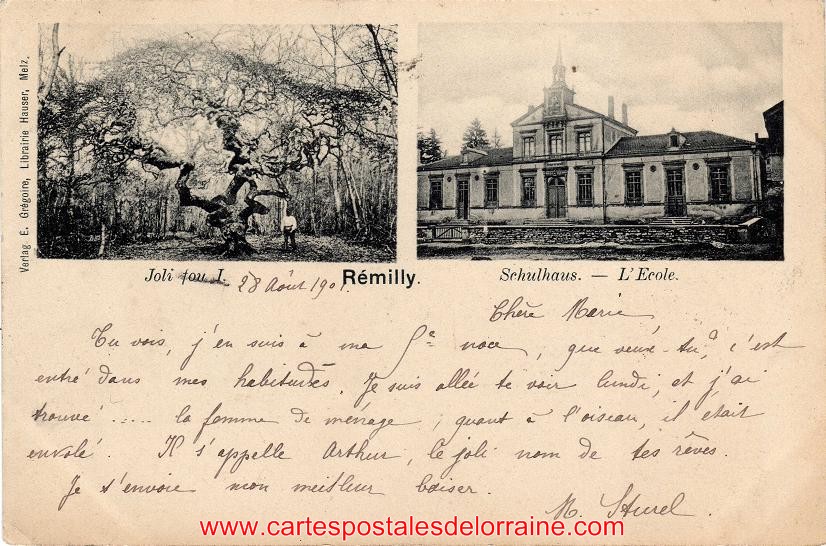 Verlag E. Grégoire, Librairie Hauser, Metz.
Joli fou I.
28 Août 1901.
Rémilly.
Schulhaus. — L'Ecole.
Chère Marie
Tu vois, j'en suis à ma noce, que veux-tu, c'est
entré dans mes habitudes. Je suis allée te voir lundi, et j'ai
trouvé ..... la femme de ménage ; quant à l'oiseau, il était
envolé. Il s'appelle Arthur, le joli nom de tes rêves.
Je t'envoie mon meilleur baiser.
M. Sturel
www.cartespostalesdelorraine.com